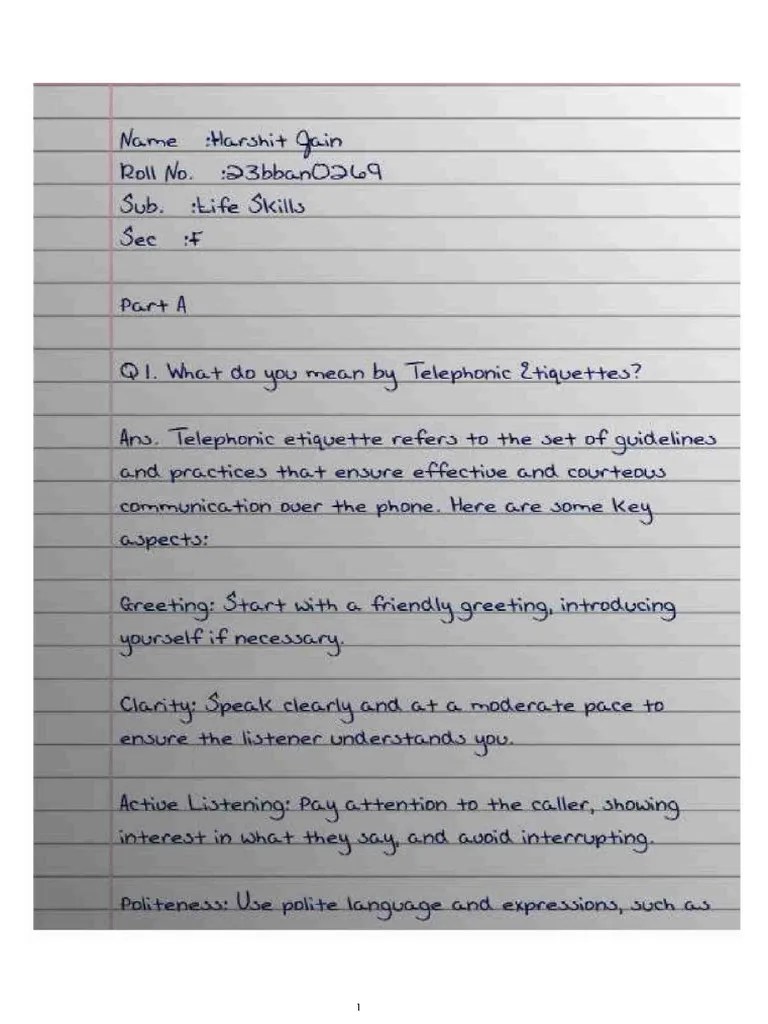 Name :Harshit Jain
Roll No. :23bban0269
Sub. :Life Skills
Sec :F
Part A
Q1. What do you mean by Telephonic Etiquettes?
Ans. Telephonic etiquette refers to the set of guidelines
and practices that ensure effective and courteous
communication over the phone. Here are some key
aspects:
Greeting: Start with a friendly greeting, introducing
yourself if necessary.
Clarity: Speak clearly and at a moderate pace to
ensure the listener understands you.
Active Listening: Pay attention to the caller, showing
interest in what they say, and avoid interrupting.
Politeness: Use polite language and expressions, such as
1